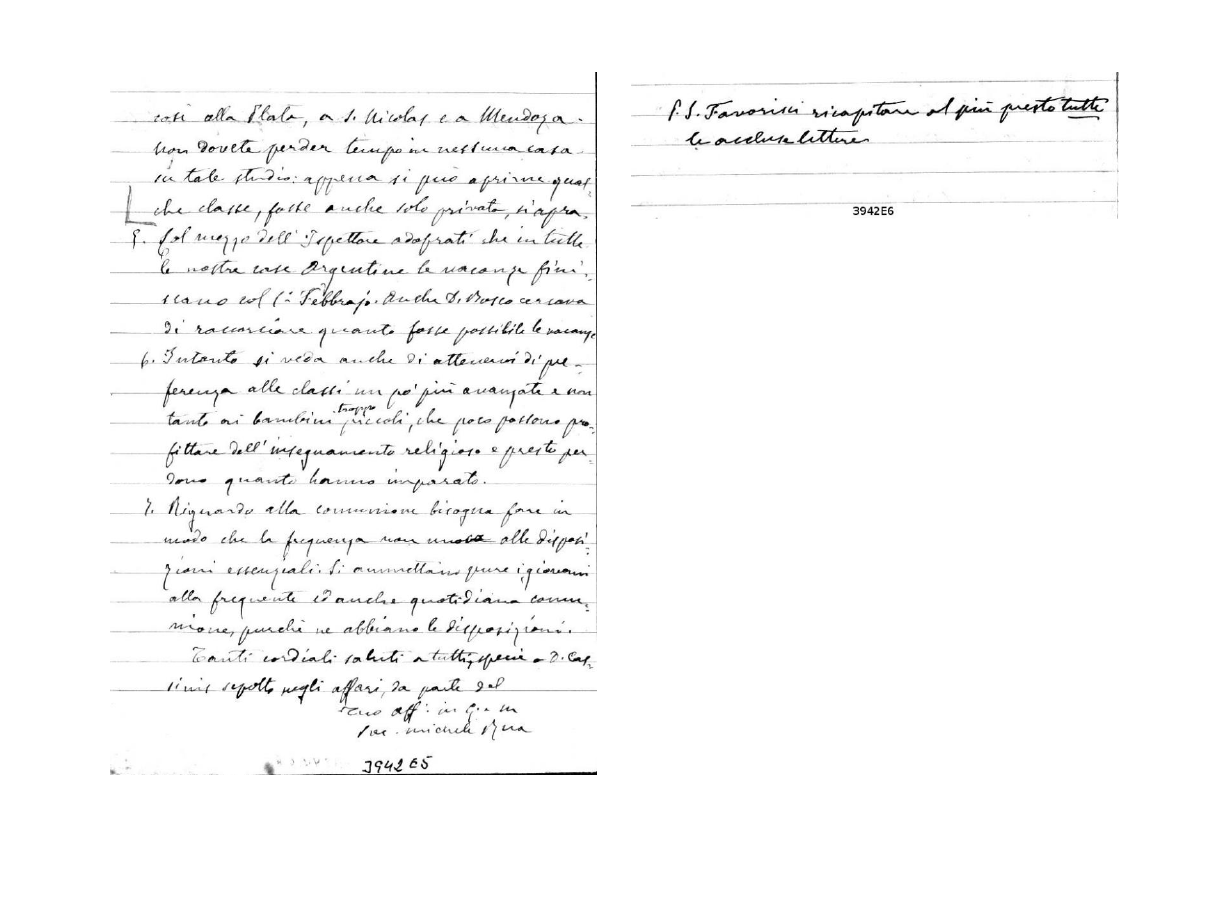 così alla Plata, a S. Nicolas e a Mendoza.
Non dovete perder tempo in nessuna casa
in tale studio: appena si può aprirne qual-
che classe, fosse anche solo privata, si apra.
5. Pel mezzo dell'Ispettore adoprati che in tutte
le nostre case Argentine le vacanze fini-
scano col 1° Febbrajo. Anche D. Bosco cercava
di raccorciare quanto fosse possibile le vacanze
6. Intanto si veda anche di attenervi di pre-
ferenza alle classi un po' più avanzate e non
tanto ai bambini troppo piccoli, che poco possono pro-
fittare dell'insegnamento religioso e presto per-
dono quanto hanno imparato.
7. Riguardo alla comunione bisogna fare in
modo che la frequenza non alle disposi-
zioni essenziali. Si ammettano pure i giovani
alla frequente ed anche quotidiana comu-
nione, purchè ne abbiano le disposizioni.
Tanti cordiali saluti a tutti, specie a D. Cas-
sinis sepolto negli affari, da parte del
tuo aff° in G. e M
Sac. Michele Rua
3942E5
P.S. Favorisci ricapitare al più presto tutte
le accluse lettere
3942E6